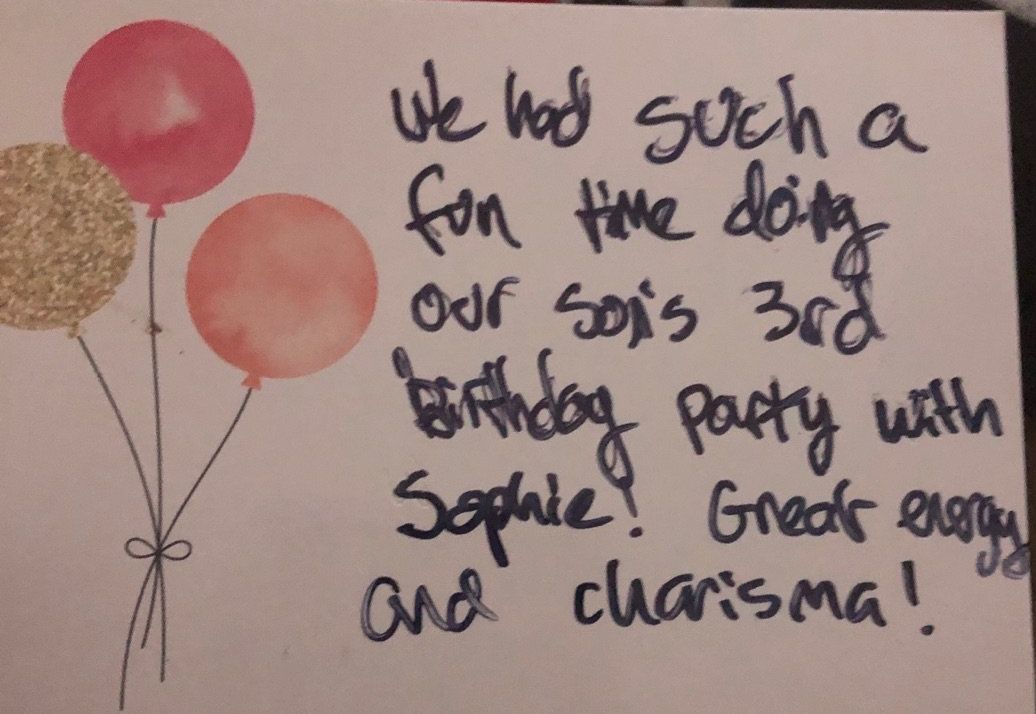 We had such a
fun time doing
our son's 3rd
birthday party with
Sophie! Great energy
and charisma!